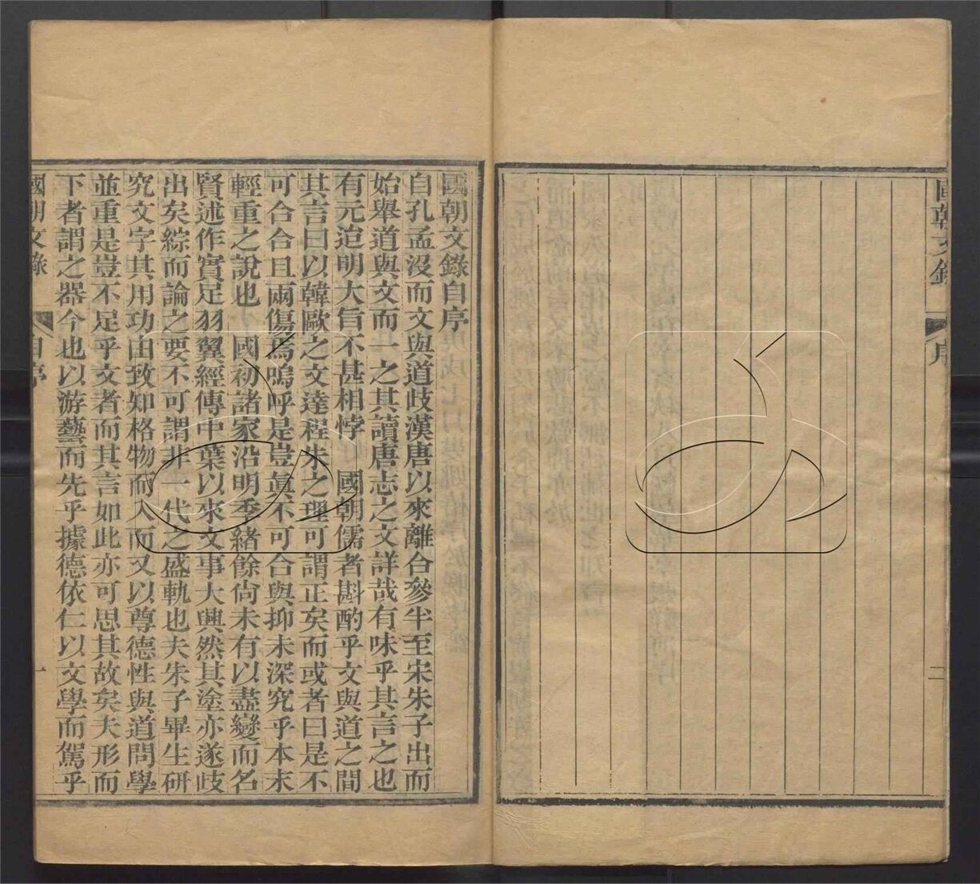 國朝文錄
序
二
國朝文錄自序
自孔孟沒而文與道歧漢唐以來離合參半至宋朱子出而
始舉道與文而一之其讀唐志之文詳哉有味乎其言之也
有元迨明大旨不甚相悖國朝儒者斟酌乎文與道之間
其言曰以韓歐之文達程朱之理可謂正矣而或者曰是不
可合合且兩傷焉嗚呼是豈眞不可合與抑未深究乎本末
輕重之說也國初諸家沿明季緒餘尙未有以盡變而名
賢述作實足羽翼經傳中葉以來文事大興然其塗亦遂歧
出矣綜而論之要不可謂非一代之盛軌也夫朱子畢生研
究文字其用功由致知格物而入而又以尊德性與道問學
並重是豈不足乎文者而其言如此亦可思其故矣夫形而
下者謂之器今也以游藝而先乎據德依仁以文學而駕乎
國朝文錄
自序
一